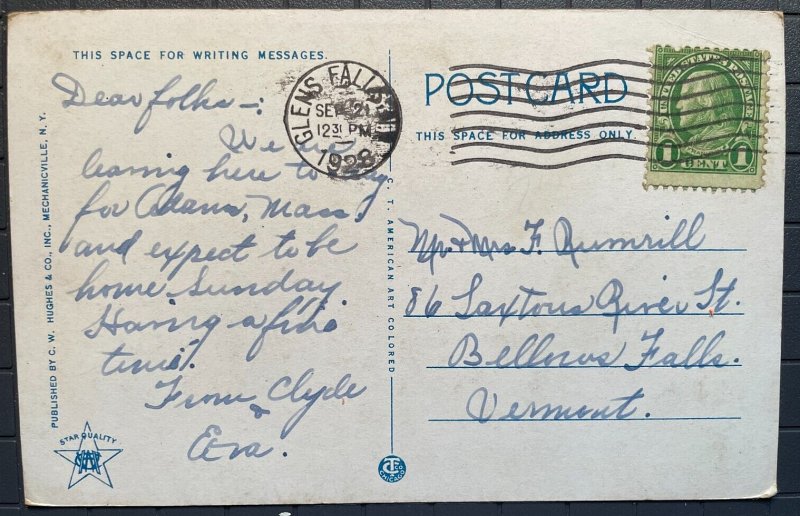 THIS SPACE FOR WRITING MESSAGES.
Dear folks -:
We are
leaving here to-day
for Adams, Mass.
and expect to be
home Sunday
Having a fine
time.
From Clyde
&
Eva.
PUBLISHED BY C. W. HUGHES & CO., INC., MECHANICVILLE, N. Y.
STAR QUALITY
C. T. AMERICAN ART COLORED
CHICAGO
GLENS FALLS
SEP 21
1230 PM
1928
POST CARD
THIS SPACE FOR ADDRESS ONLY.
UNITED STATES POSTAGE
1 CENT 1
Mr. & Mrs. F. Rumrill
86 Saxtons River St.
Bellows Falls.
Vermont.